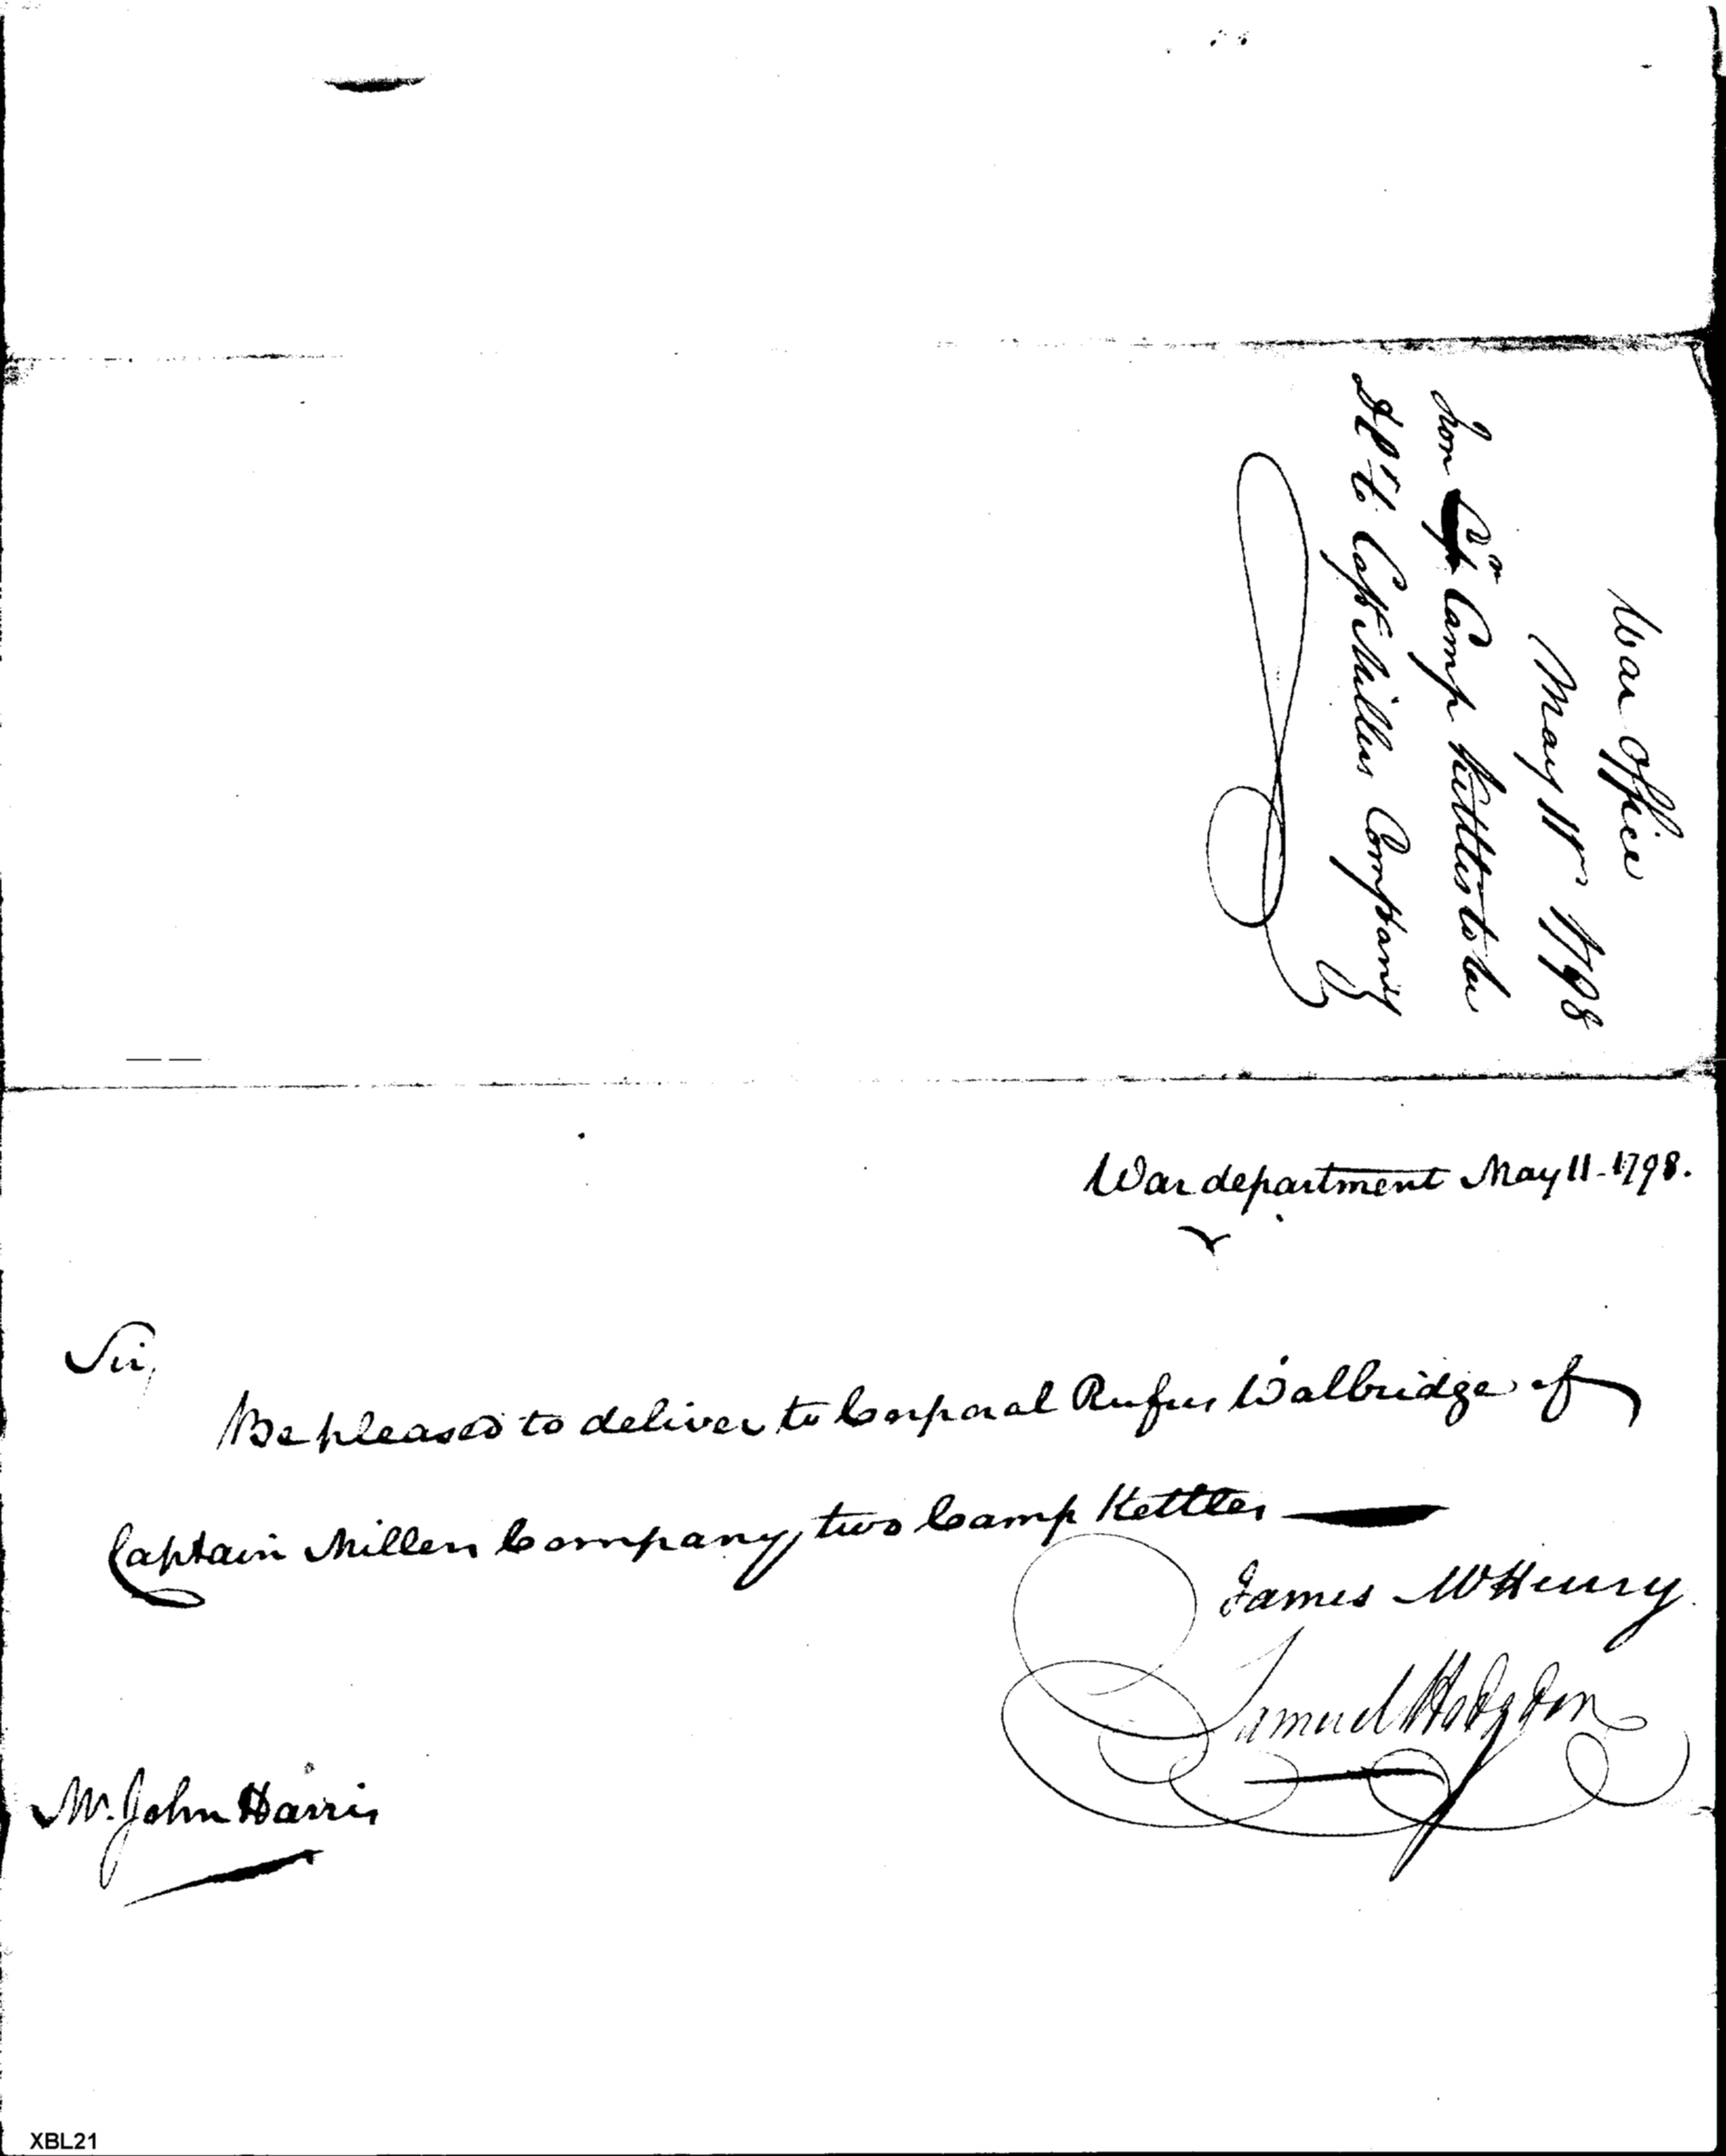 War Office
May 11th 1798
for Camp Kettles to be
Capt. Millers Company
War department May 11 - 1798.
Sir,
Be pleased to deliver to Corporal Rufus Walbridge of
Captain Millers Company, two Camp Kettles
James McHenry
Samuel Hodgdon
Mr. John Harris
XBL21